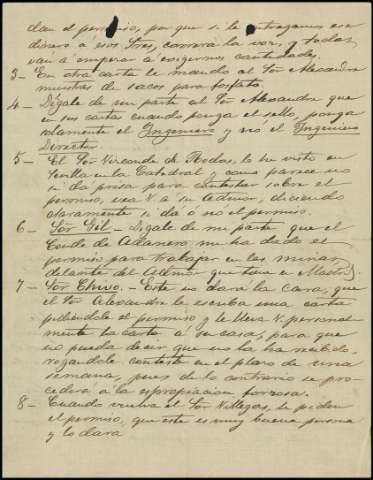 dan el permiso, por que si le entregamos ese
dinero a esos tres, correrá la voz, y todos
van á empezar á exigirnos cantidades.
3 — En otra carta le mando al Sor Alexandre
muestras de sacos para fosfato.
4 — Dígale de mi parte al Sor Alexandre que
en sus cartas cuando ponga el sello, ponga
solamente el Ingeniero y no el Ingeniero
Director.
5 — El Sor Vizconde de Rodas, lo he visto en
Sevilla en la Catedral y como parece no
se da prisa para contestar sobre el
permiso, vea V. a su Admor, diciendo
claramente si da ó no el permiso.
6 — Sor Gil — Dígale de mi parte que el
Conde de Adanero, me ha dado el
permiso para trabajar en las minas,
delante del Admor que tiene en Madrid.
7 — Sor Chivo. — Este no dará la cara, que
el Sor Alexandre le escriba una carta
pidiéndole el permiso y le lleva V. personal-
mente la carta á su casa, para que
no pueda decir que no la ha recibido,
rogándole conteste en el plazo de una
semana, pues de lo contrario se pro-
cederá á la expropiación forzosa.
8 — Cuando vuelva el Sor Villegas, le piden
el permiso, que este es muy buena persona
y lo dará